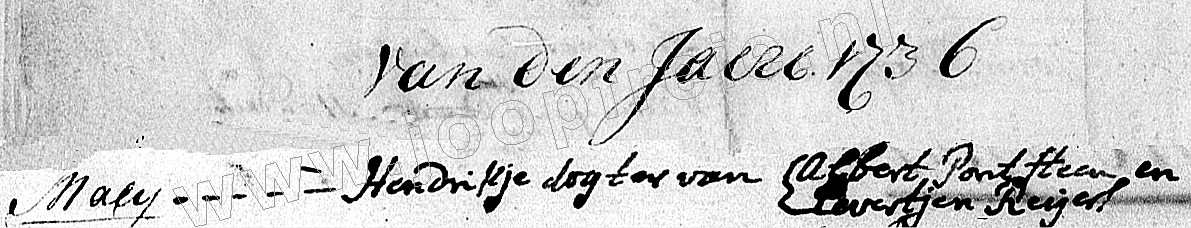 van den Jaere 1736
Maey - - - - Hendrikje dogter van Albert Pontsteen en
Evertjen Reijers
www.jooprein.nl